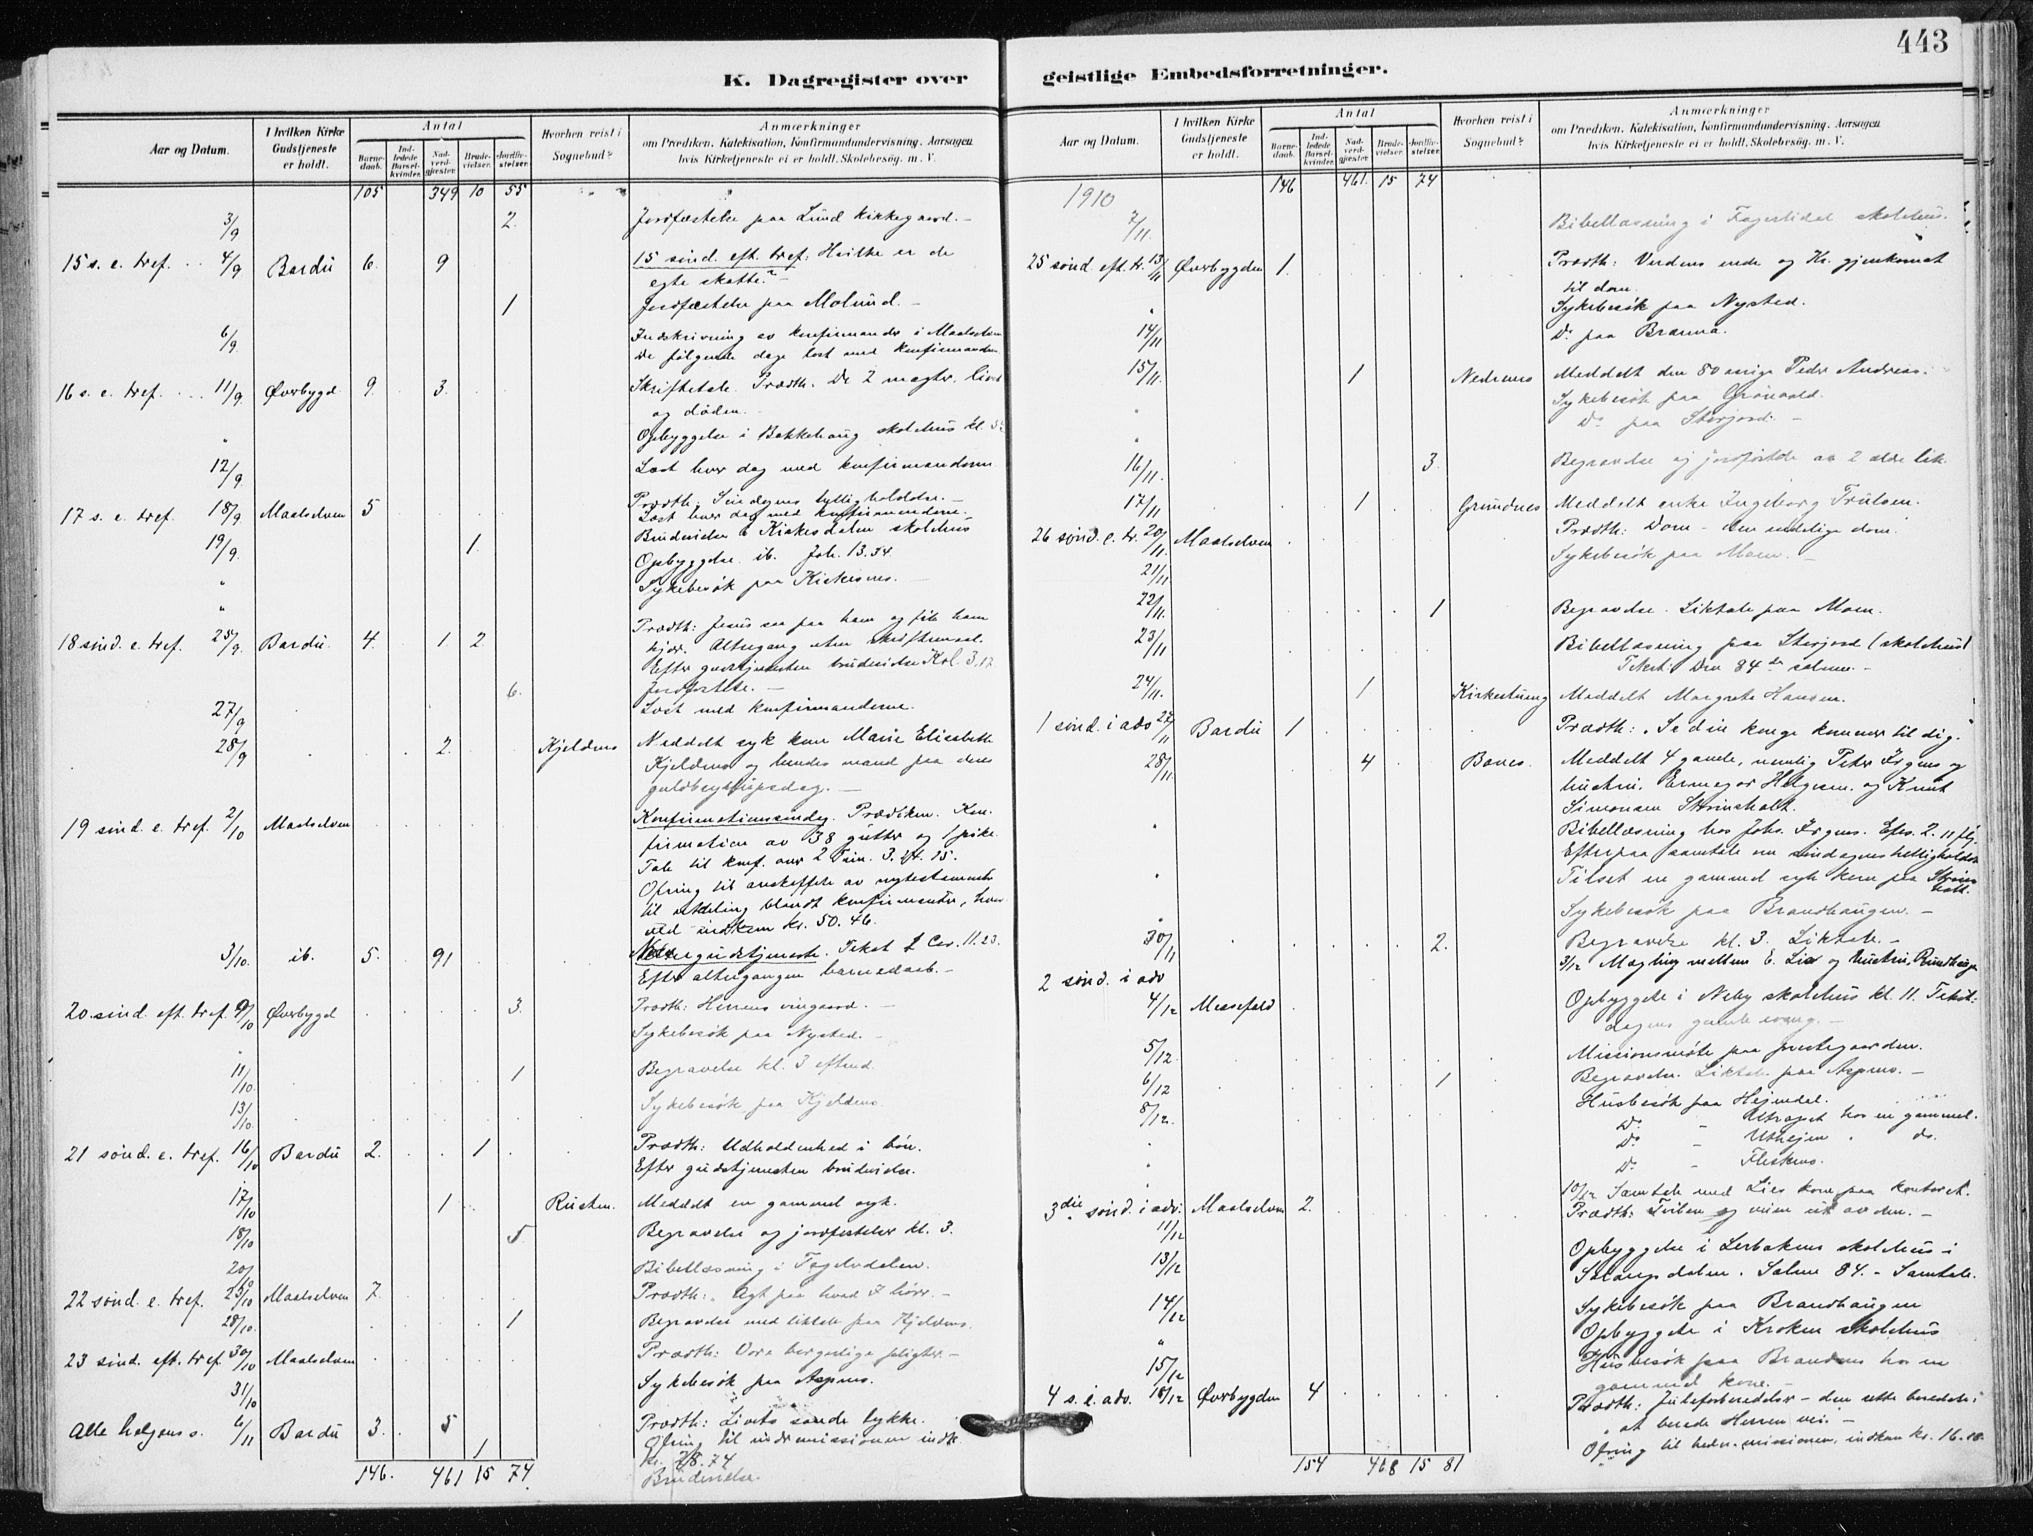 443
K. Dagregister over
geistlige Embedsforretninger.
Aar og Datum.
I hvilken Kirke Gudstjeneste er holdt.
Antal
Barnedaab.
Indledede Barselkvinder.
Nadverdgjæster.
Brudevielser.
Jordfæstelser.
Hvorhen reist i Sognebud?
Anmærkninger
om Prædiken, Katekisation, Konfirmandundervisning, Aarsagen
hvis Kirketjeneste ei er holdt, Skolebesøg, m. V.
105 349 10 55
3/9 2. Jordfæstelse paa Lund kirkegaard. -
15 s. e. tref. 4/9 Bardu 6. 9 15 sønd. eft. tref: Hvilke er de
egte skatte? -
1 Jordfæstelse paa Molund. -
6/9. Indskrivning av konfirmander i Maalselven
De følgende dage læst med konfirmanderne
16 s. e. tref. 11/9. Øverbygd 9. 3. Skriftetale. Prædth. De 2 magter. livet
og døden. -
" Opbyggelse i Bakkehaug skolehus kl. 5
12/9. Læst hver dag med konfirmanderne
17 s. e. tref. 18/9 Maalselven 5 Prædth: Søndagens helligholdelse. -
Læst hver dag med konfirmanderne.
19/9. 1. Brudevielse i Kirkesdalen skolehus
" Opbyggelse ib. Joh. 13.34.
" Sykebesøk paa Kirkesnes. -
18 sind. e. tref. 25/9. Bardu. 4. 1. 2 Prædth: Jesus saa paa ham og fik ham
kjær. Altergang uten skriftemaal.
Efter gudstjenesten brudevielse Kol. 3.17
6. Jordfæstelse. -
27/9 Læst med konfirmanderne.
28/9 2. Kjeldnes Meddelt syk kone Marie Elisabeth
Kjeldnes og hendes mand paa deres
guldbryllupsdag. -
19 sind. e. tref. 2/10 Maalselven Konfirmationssøndag. Prædiken. Kon-
firmation av 38 gutter og 1 pike.
Tale til konf. over 2 Tim. 3. 14. 15.
Ofring til anskaffelse av nytestamenter
til utdeling blandt konfirmander, hver
ved indkom kr. 50.46.
3/10. ib. 5. 91 Nattergudstjeneste. Tekst 1 Cor. 11.23.
Efter altergangen barnedaab. -
20. sind. eft. tref. 9/10 Øverbygd 3. Prædth: Herrens vingaard. -
" Sykebesøk paa Nysted. -
11/10. 1 Begravelse kl. 3 eftmd.
13/10. Sykebesøk paa Kjeldnes.
21 sønd. e. tref. 16/10 Bardu 2. 1 Prædth: Udholdenhed i bøn.
Efter gudstjenesten brudevielse.
17/10 1 Rusten. Meddelt en gammel syk.
18/10 5. Begravelse og jordfæstelser kl. 3.
20/10 Bibellæsning i Fagerlidalen.
22 sønd. e. tref. 23/10 Maalselven 7. Prædth: Agt paa hvad I hører. -
28/10. 1 Begravelse med liktale paa Kjeldnes.
23 sind. eft. tref. 30/10 Maalselven Prædth: Vore borgerlige pligter. -
31/10 Sykebesøk paa Aspnes.
Alle helgens s. 6/11 Bardu 3. 5 Prædth: Livets sande lykke.
Ofring til indremissionen indk.
kr. 28.74
1 Brudevielse.
146. 461 15 74.
Aar og Datum.
I hvilken Kirke Gudstjeneste er holdt.
Antal
Barnedaab.
Indledede Barselkvinder.
Nadverdgjæster.
Brudevielser.
Jordfæstelser.
Hvorhen reist i Sognebud?
Anmærkninger
om Prædiken, Katekisation, Konfirmandundervisning, Aarsagen
hvis Kirketjeneste ei er holdt, Skolebesøg, m. V.
1910 146 461. 15 74
7/11. Bibellæsning i Fagerlidal skolehus.
25 sønd. eft. tr. 13/11 Øverbygden 1. Prædth: Verdens ende og Kr. gjenkomst
til dom.
" Sykebesøk paa Nysted.
14/11 Do paa Brænna.
15/11. 1 Nedrenes Meddelt den 80 aarige Peder Andreas.
" Sykebesøk paa Grönvold.
" Do paa Storjord. -
16/11. 3. Begravelse og jordfæstelse av 2 ældre lik.
17/11 1 Grundnes Meddelt enke Ingeborg Trulsen.
26 sønd. e. tr. 20/11. Maalselven Prædth: Dom - den endelige dom.
21/11 Sykebesøk paa Moen. -
22/11. 1 Begravelse. Liktale paa Moen.
23/11 Bibellæsning paa Storjord (skolehus)
Tekst: Den 84de salme. -
24/11. 1 Kirkestueng Meddelt Margrete Hansen.
1 sønd. i adv 27/11 Bardu 1 Prædth: Se din konge kommer til dig.
28/11 4 Bones. Meddelt 4 gamle, nemlig Peter Ørgens og
hustru, Ermegor Helgesen og Knut
Simonsen Strømsholt.
" Bibellæsning hos Johs. Ørgens. Efes. 2. 11 flg.
Efterpaa samtale om søndagens helligholdelse
" Tilset en gammel syk kone paa Strømsholt.
" Sykebesøk paa Brandhaugen. -
30/11 2. Begravelse kl. 3. Liktale. -
3/12 Mægling mellem E. Lie og hustru, Rundhaug
2 sønd. i adv
4/12 Messefald Opbyggelse i Neby skolehus kl. 11. Tekst:
dagens gamle evang. -
5/12. Missionsmøte paa prestegaarden.
6/12 1 Begravelse. Liktale paa Aspnes. -
8/12. Husbesøk paa Hejmdal.
Do - Utræset hos en gammel.
" Do - Uthejen " do.
" Do - Fleskmo.
10/12 Samtale med Lies kone paa kontoret.
3die sønd. i adv. 11/12 Maalselven 2. Prædth: Tvilen og veien ut av den. -
13/12 Opbyggelse i Lerbakens skolehus i
Salangsdalen. Salme 84. - Samtale.
14/12 Sykebesøk paa Brandhaugen
" Opbyggelse i Kroken skolehus
15/12 Husbesøk paa Brandnes hos en
gammel kone. -
4 s. i. adv. 18/12 Øverbygden 4 Prædth: Juleforberedelse - den rette beredelse:
at berede Herren vei. -
Ofring til hedn. missionen, indkom kr. 16.
154 468 15 81